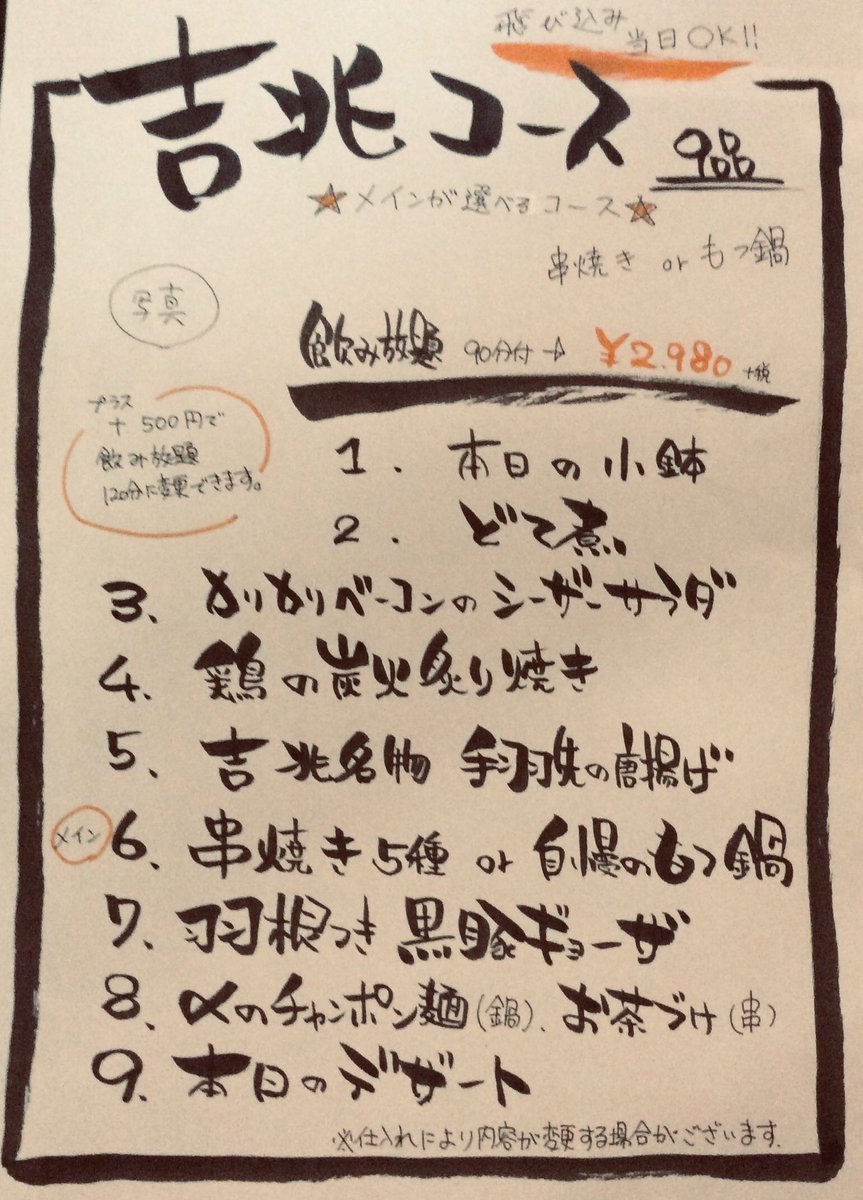 飛び込み
当日OK!!
吉兆コース 9品
★メインが選べるコース★
串焼き or もつ鍋
写真
飲み放題 90分付→ ¥2.980 +税
プラス
+500円で
飲み放題
120分に変更できます。
1. 本日の小鉢
2. どて煮
3、かりかりベーコンのシーザーサラダ
4、鶏の炭火炙り焼き
5、吉兆名物 手羽先の唐揚げ
メイン 6、串焼き5種 or 自慢のもつ鍋
7、羽根つき黒豚ギョーザ
8、〆のチャンポン麺(鍋)、お茶づけ(串)
9、本日のデザート
※仕入れにより内容が変更する場合がございます。